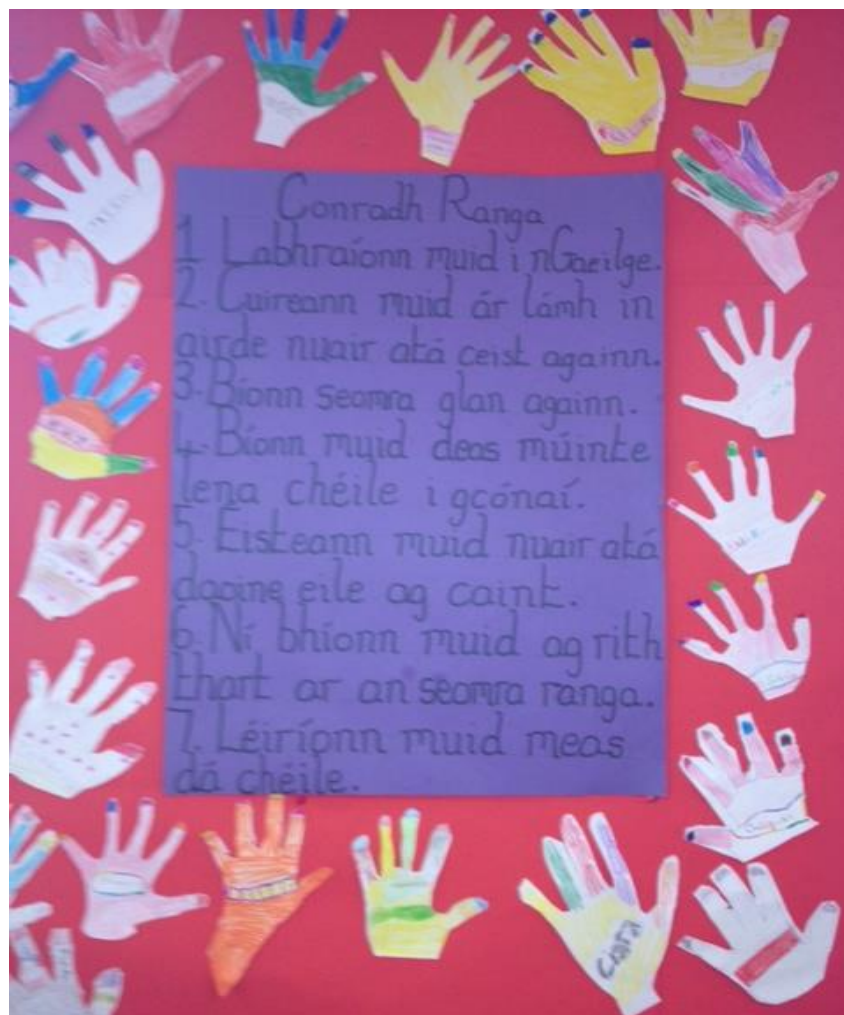 Conradh Ranga
1 Labhraíonn muid i nGaeilge.
2. Cuireann muid ár lámh in
airde nuair atá ceist againn.
3. Bíonn seomra glan againn.
4. Bíonn muid deas múinte
lena chéile i gcónaí.
5. Éisteann muid nuair atá
daoine eile ag caint.
6. Ní bhíonn muid ag rith
thart ar an seomra ranga.
7. Léiríonn muid meas
dá chéile.
Ciara